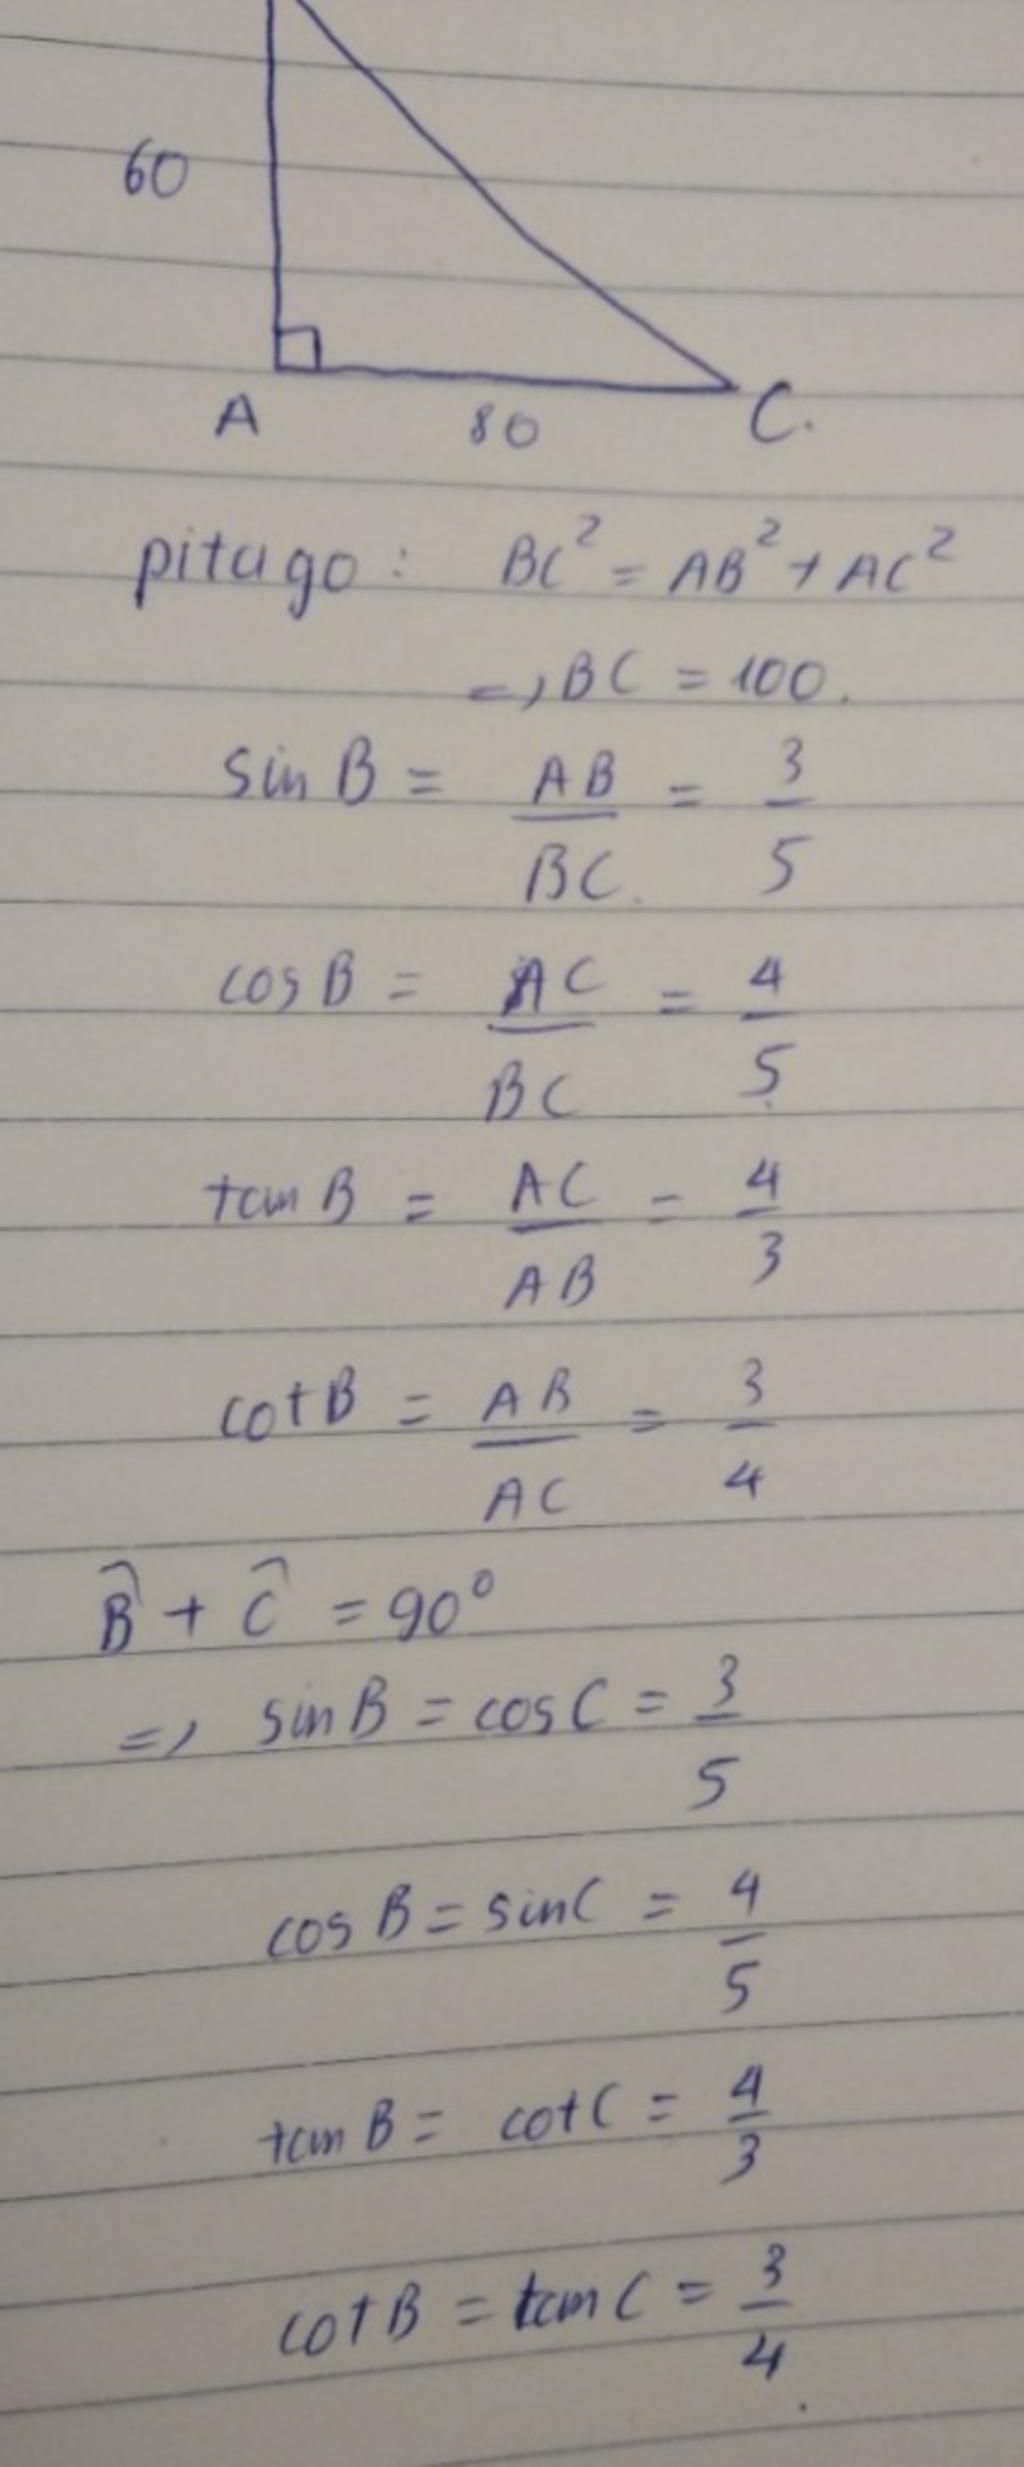 60
A 80 C.
pitago: BC² = AB² + AC²
=> BC = 100.
sin B = AB/BC. = 3/5
cos B = AC/BC = 4/5
tan B = AC/AB = 4/3
cot B = AB/AC = 3/4
B̂ + Ĉ = 90°
=> sin B = cos C = 3/5
cos B = sin C = 4/5
tan B = cot C = 4/3
cot B = tan C = 3/4.